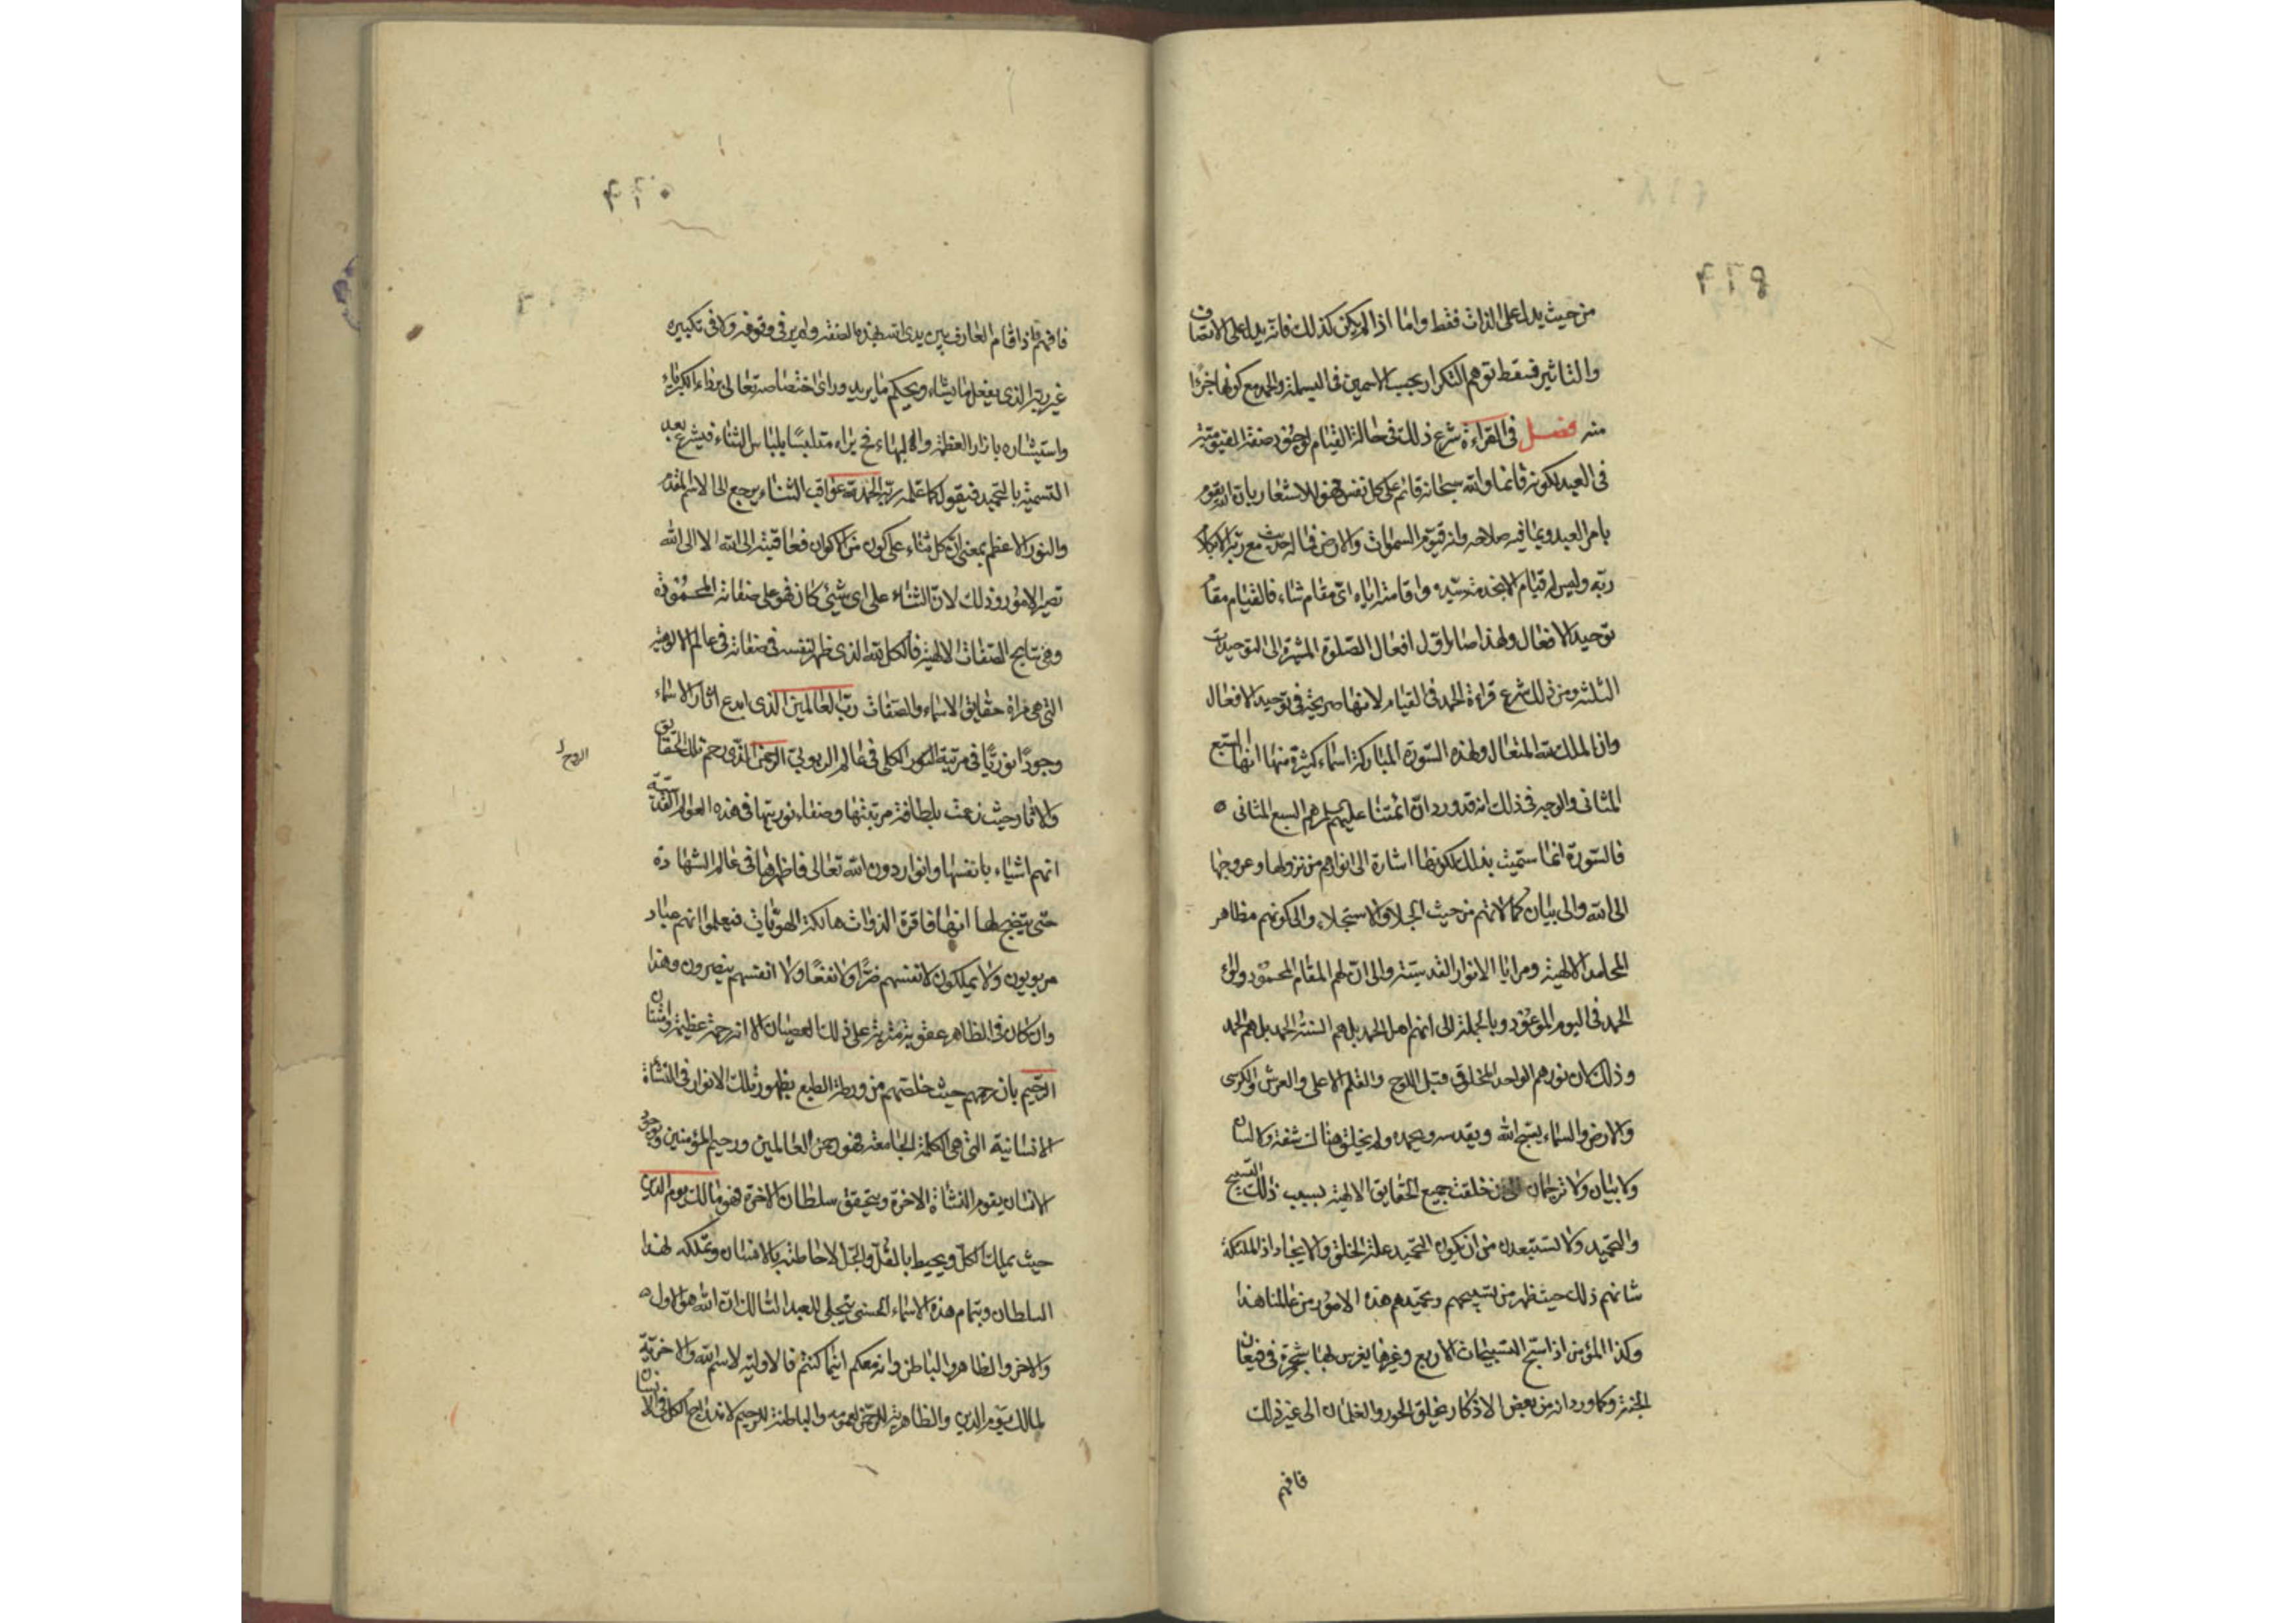 من حيث يدل على الذات فقط واما اذا لم يكن كذلك فانه يدل على الاتصاف
والتاثير فسقط توهم التكرار بحسب الاسمين فى البسملة والحمد مع كونها جزءا
منه فصل فى القراءة شرع ذلك فى حالة القيام لوجود صفة القيومية
فى العبد لكونه قائما والله سبحانه قائم على كل نفس فهو للاشعار بان الله يقوم
بامر العبد وبما فيه صلاحه وانه قيوم السموات والارض فماله حديث مع ربه الا بكلام
ربه وليس له قيام الا بخدمة سيده واقامته اياه اى مقام شاء فالقيام مقام
توحيد الافعال ولهذا صار اول افعال الصلوة المشيرة الى التوحيدات
الثلثه ومن ذلك شرع قراءة الحمد فى القيام لانها صريحة فى توحيد الافعال
وان الملك لله المتعال ولهذه السورة المباركة اسماء كثيرة منها انها السبع
المثانى والوجه فى ذلك انه قد ورد ان ائمتنا عليهم السلام هم السبع المثانى ه
فالسورة انما سميت بذلك لكونها اشارة الى انوارهم من نزولها وعروجها
الى الله والى بيان كمالاتهم من حيث الجلاء والاستجلاء والى كونهم مظاهر
المحامد الالهية ومرايا الانوار القدسية والى ان لهم المقام المحمود ولواء
الحمد فى اليوم الموعود وبالجملة الى انهم اهل الحمد بل هم السنة الحمد بل هم الحمد
وذلك كان نورهم الواحد المخلوق قبل اللوح والقلم الاعلى والعرش والكرسى
والارض والسماء يسبح الله ويقدسه ويحمده ولم يخلق هناك شفة ولا لسان
ولا بيان ولا ترجمان خلقت جميع الحقايق الالهية بسبب ذلك التسبيح
والتحميد ولا تستبعدن من ان يكون التحميد علة الخلق والايجاد اذ الملئكة
شانهم ذلك حيث ظهر من تسبيحهم وتحميدهم هذه الامور من عالمنا هذا
وكذا المؤمن اذا سبح التسبيحات الاربع وغيرها يغرس لها شجرة فى قيعان
الجنة وكما ورد انه من بعض الاذكار يخلق الحور والغلمان الى غير ذلك
فافهم
فافهم فاذا قام العارف بين يدى الله بهذه الصفة ولم ير فى وقوفه ولا فى تكبيره
غير ربه الذى يفعل ما يشاء ويحكم ما يريد وراى اختصاصه تعالى برداء الكبرياء
واستيثاره بازار العظمة والبهاء فح يراه متلبسا بلباس الثناء فيشرع بعد
التسمية بالتحميد فيقول كما علمه ربه الحمد لله عواقب الثناء يرجع الى الاسم المقدم
والنور الاعظم بمعنى ان كل ثناء على كون من الاكوان فعاقبته الى الله الا الى الله
تصير الامور وذلك لان الثناء على اى شئ كان فهو على صفاته المحمودة
وهى نتايج الصفات الالهية فالكل لله الذى ظهر لنفسه فى صفاته فى عالم الالوهية
التى هى مراة حقايق الاسماء والصفات رب العالمين الذى ابدع اثار الاسماء
وجودا نوريا فى مرتبة النور الكلى فى عالم الربوبى الرحمن الذى رحم تلك الحقايق
والاثار حيث زعمت بلطافة مرتبتها وصفاء نوريتها فى هذه العوالم القدسية
انهم اشياء بانفسها وانوار دون الله تعالى فاظهرها فى عالم الشهادة
حتى يتضح لها انها فاقرة الذوات هالكة الهويات فيعلموا انهم عباد
مربوبون ولا يملكون لانفسهم ضرا ولا نفعا ولا انفسهم ينصرون وهذا
وان كان فى الظاهر عقوبة مترتبة على ذلك العصيان الا انه رحمة عظيمة وامتنان
الرحيم بان رحمهم حيث خلصهم من ورطة الطبع بظهور تلك الانوار فى النشأة
الانسانية التى هى الكلمة الجامعة فهو رحمن العالمين ورحيم المؤمنين وبوجود
الانسان يقوم النشاة الاخرة ويتحقق سلطان الاخرة فهو مالك يوم الدين
حيث يملك الكل ويحيط بالقل والجل لاحاطته بالانسان وتملكه لهذا
السلطان وبتمام هذه الاسماء الحسنى يتجلى للعبد السالك ان الله هو الاول ه
والاخر والظاهر والباطن وانه معكم اينما كنتم فالاولية لاسم الله والاخرية
لمالك يوم الدين والظاهرية للرحمن لعمومه والباطنة للرحيم لاندراج الكل فى الانسان